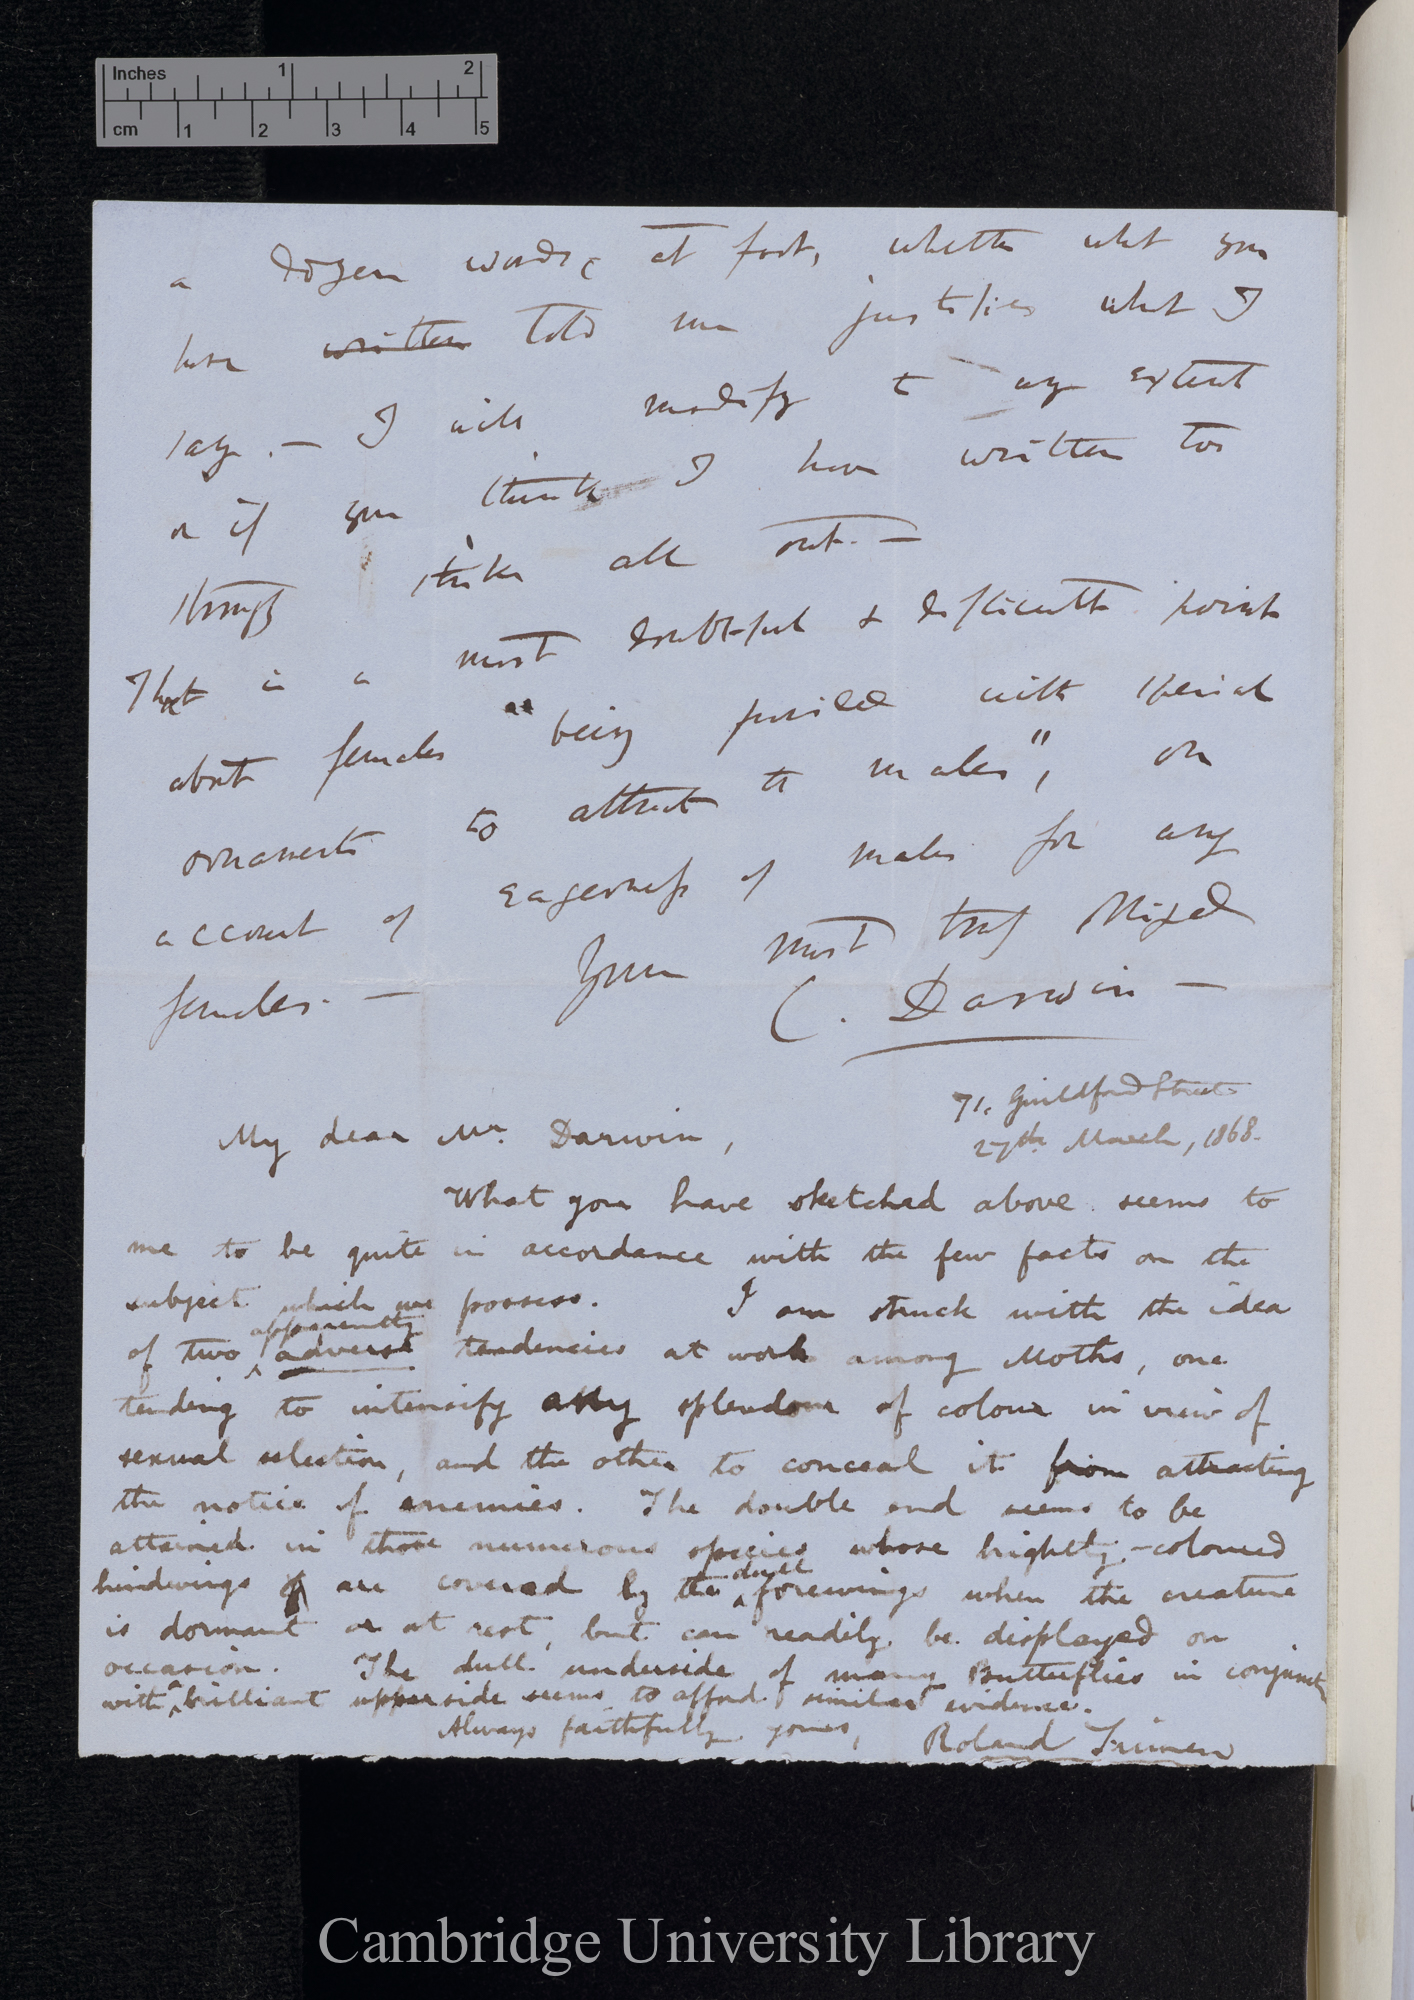 Inches 1 2
cm 1 2 3 4 5
a dozen words, at foot, whether what you
have written told me justifies what I
say. — I will modify to any extent
or if you think I have written too
strongly strike all out. —
That is a most doubtful & difficult point
about females "being furnished with special
ornaments to attract the males", on
account of eagerness of males for any
females. — Yours most truly obliged
C. Darwin —
71, Guildford Street
27th. March, 1868.
My dear Mr. Darwin,
What you have sketched above seems to
me to be quite in accordance with the few facts on the
subject which we possess. I am struck with the idea
of two apparently adverse tendencies at work among Moths, one
tending to intensify any splendour of colour in view of
sexual selection, and the other to conceal it from attracting
the notice of enemies. The double end seems to be
attained in those numerous species whose brightly-coloured
hindwings are covered by the dull forewings when the creature
is dormant or at rest, but can readily be displayed on
occasion. The dull underside of many Butterflies in conjunctn
with brilliant upperside seems to afford similar evidence.
Always faithfully yours, Roland Trimen
Cambridge University Library